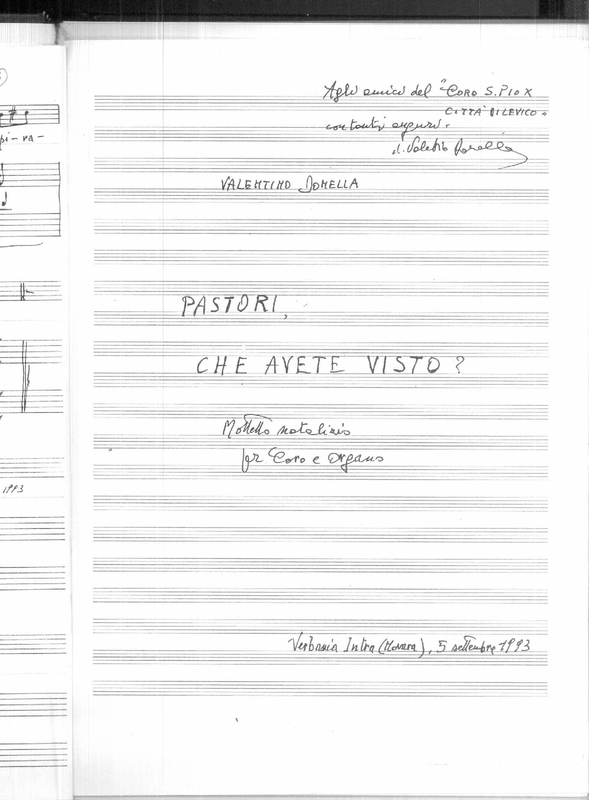 pi-ra-
1993
Agli amici del "CORO S. PIO X
CITTÀ DI LEVICO"
con tanti auguri.
d. Valentino Donella
VALENTINO DONELLA
PASTORI,
CHE AVETE VISTO?
Mottetto natalizio
per Coro e Organo
Verbania Intra (Novara), 5 settembre 1993